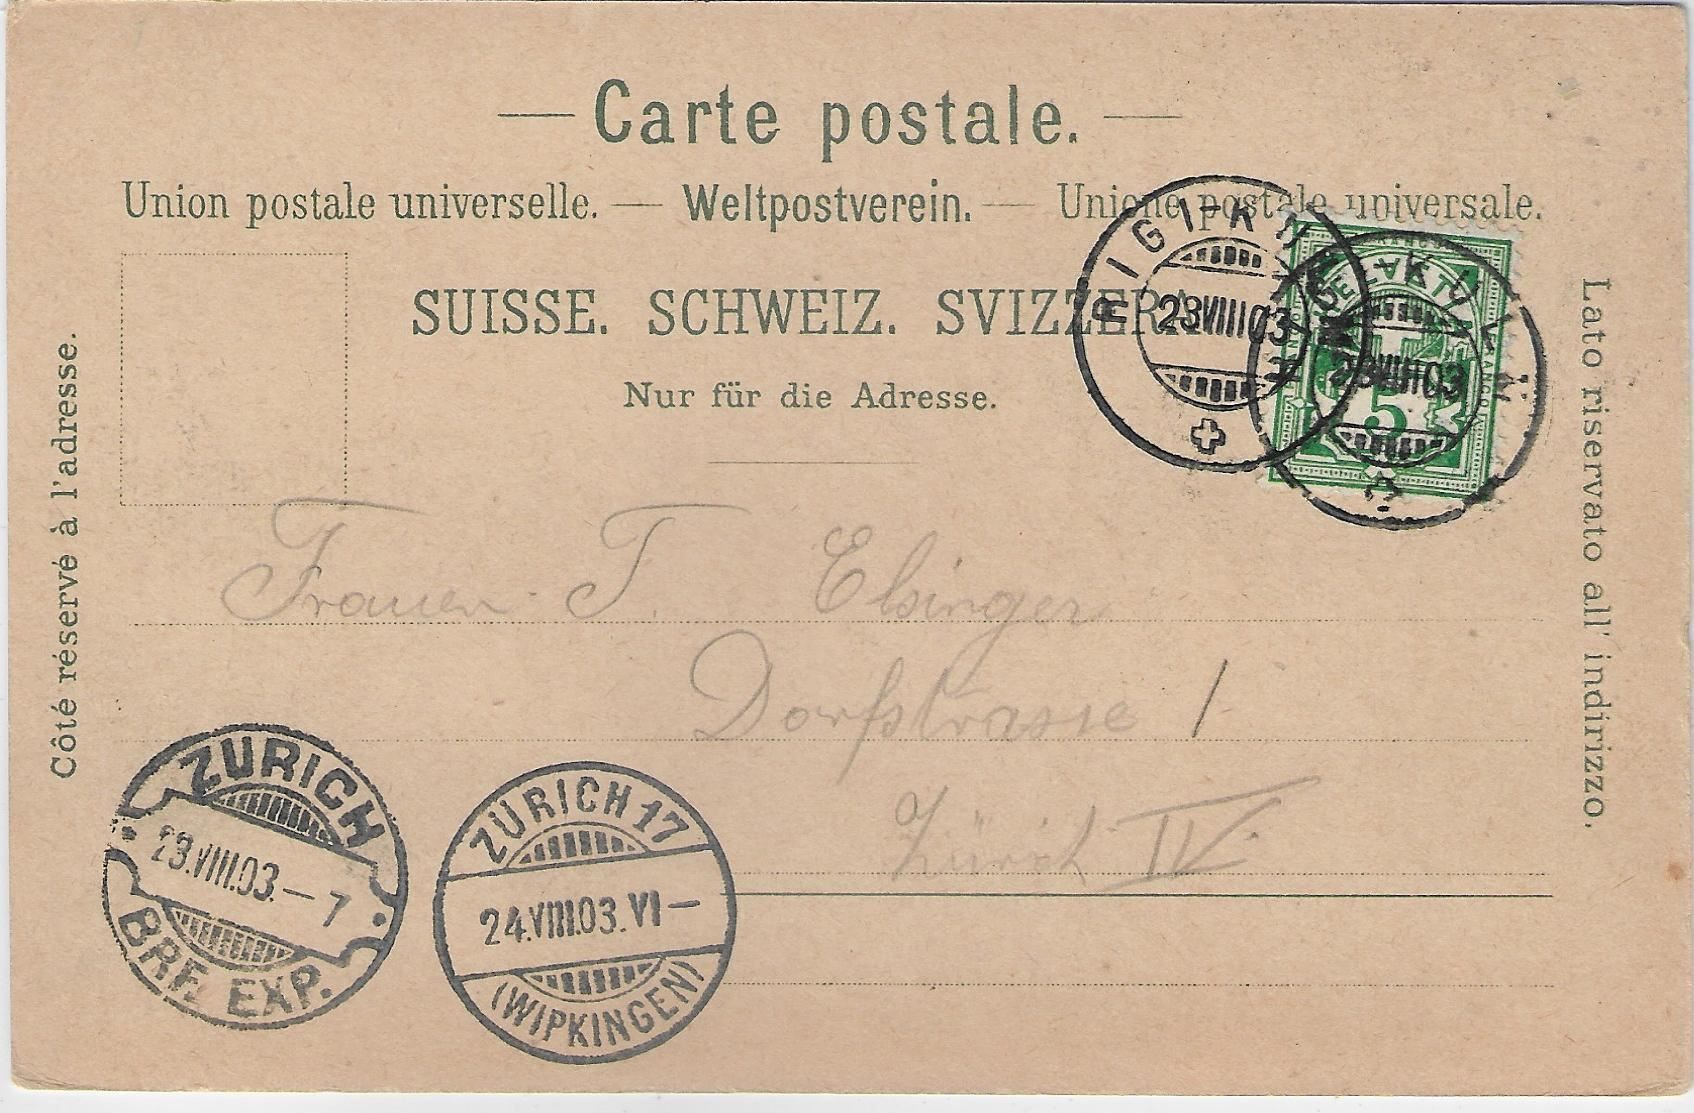 Carte postale.
Union postale universelle. — Weltpostverein. — Unione postale universale.
SUISSE. SCHWEIZ. SVIZZERA
Nur für die Adresse.
Côté réservé à l'adresse.
Lato riservato all' indirizzo.
RIGI-KULM
23.VIII.03
RIGI-KULM
23.VIII.03
5
Frauen T. Elsinger
Dorfstrasse 1
Zürich IV.
ZÜRICH
23.VIII.03.—7
BRF. EXP.
ZÜRICH 17
24.VIII.03.VI—
(WIPKINGEN)